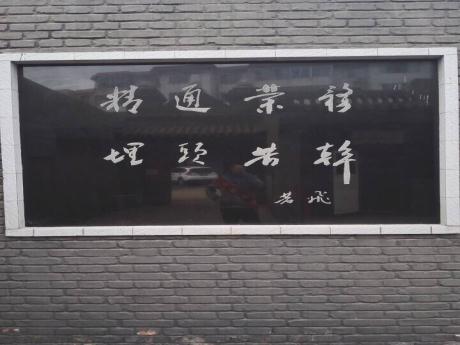 精通業務
埋頭苦幹
若飛